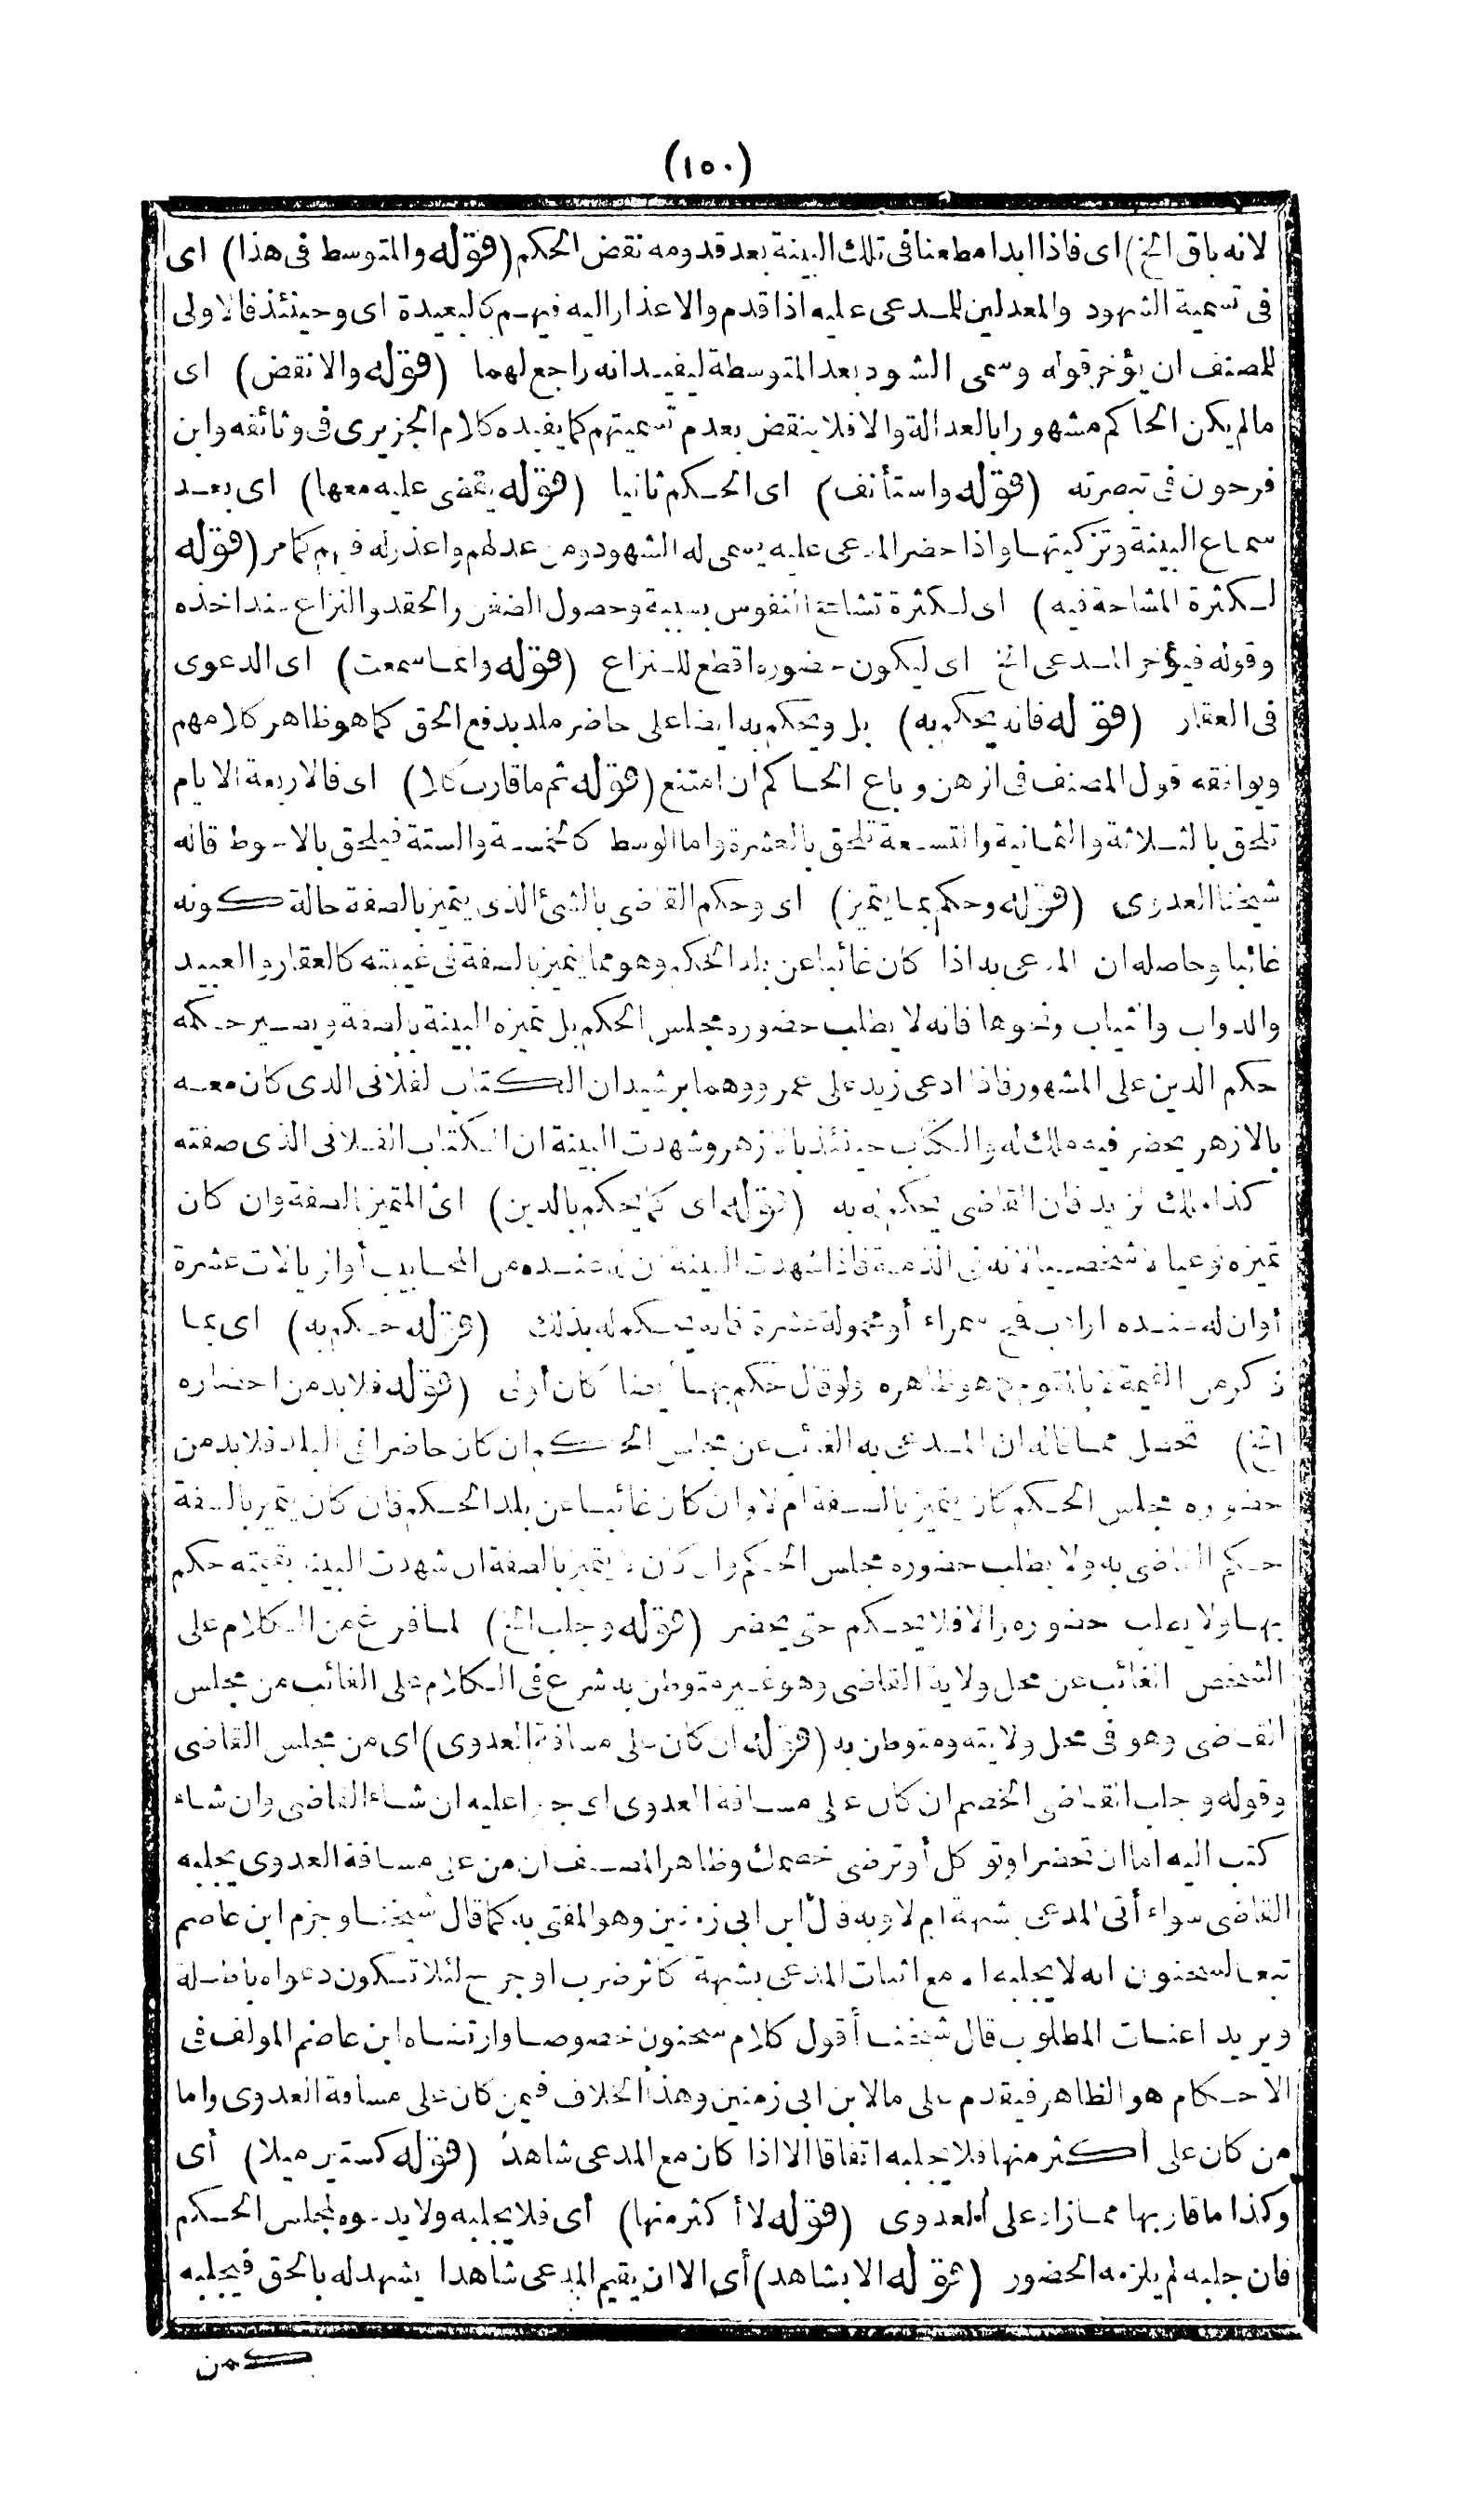 (١٥٠)
لانه باق الخ) اى فاذا ابدا مطعنا فى تلك البينة بعد قدومه نقض الحكم (قوله والمتوسط فى هذا) اى
فى تسمية الشهود والمعدلين للمدعى عليه اذا قدم والاعذار اليه فيهم كالبعيدة اى وحينئذ فالاولى
للمصنف ان يؤخر قوله وسمى الشهود بعد المتوسطة ليفيد انه راجع لهما (قوله والا نقض) اى
مالم يكن الحاكم مشهورا بالعدالة والا فلا ينقض بعدم تسميتهم كما يفيده كلام الجزيرى فى وثائقه وابن
فرحون فى تبصرته (قوله واستأنف) اى الحكم ثانيا (قوله يقضى عليه معها) اى بعد
سماع البينة وتزكيتها واذا حضر المدعى عليه يسمى له الشهود ومن عدلهم واعذر له فيهم كما مر (قوله
لكثرة المشاحة فيه) اى لكثرة تشاحح النفوس بسببه وحصول الضغن والحقد والنزاع عند اخذه
وقوله فيؤخر المدعى الخ اى ليكون حضوره اقطع للنزاع (قوله وانما سمعت) اى الدعوى
فى العقار (قوله فانه يحكم به) بل ويحكم به ايضا على حاضر ملد بدفع الحق كما هو ظاهر كلامهم
ويوافقه قول المصنف فى الرهن وباع الحاكم ان امتنع (قوله ثم ما قارب كلا) اى فالاربعة الايام
تلحق بالثلاثة والثمانية والتسعة تلحق بالعشرة واما الوسط كالخمسة والستة فيلحق بالاحوط قاله
شيخنا العدوى (قوله وحكم بما يتميز) اى وحكم القاضى بالشئ الذى يتميز بالصفة حالة كونه
غائبا وحاصله ان المدعى به اذا كان غائبا عن بلد الحكم وهو مما يتميز بالصفة فى غيبته كالعقار والعبيد
والدواب والثياب ونحوها فانه لا يطلب حضوره مجلس الحكم بل تميزه البينة بالصفة ويصير حكمه
حكم الدين على المشهور فاذا ادعى زيد على عمرو وهما برشيد ان الكتاب لفلانى الذى كان معه
بالازهر يحضر فيه ملك له والكتاب حينئذ بالازهر وشهدت البينة ان الكتاب الفلانى الذى صفته
كذا ملك لزيد فان القاضى يحكم له به (قوله اى كما يحكم بالدين) اى المتميز بالصفة وان كان
تميزه نوعيا لا شخصيا لانه فى الذمة فاذا شهدت البينة ان له عنده من المحابيب أو الريالات عشرة
أو ان له عنده ارادب قمح سمراء أو محمولة عشرة فانه يحكم له بذلك (قوله حكم به) اى بما
ذكر من القيمة لا بالمتقوم كما هو ظاهره ولو قال حكم بها ايضا كان أولى (قوله فلا بد من احضاره
الخ) تحصل مما قاله ان المدعى به الغائب عن مجلس الحكم ان كان حاضرا فى البلد فلا بد من
حضوره مجلس الحكم كان يتميز بالصفة ام لا وان كان غائبا عن بلد الحكم فان كان يتميز بالصفة
حكم القاضى به ولا يطلب حضوره مجلس الحكم وان كان لا يتميز بالصفة ان شهدت البينة بقيمته حكم
بها ولا يطلب حضوره والا فلا يحكم حتى يحضر (قوله وجلب الخ) لما فرغ من الكلام على
الشخص الغائب عن محل ولاية القاضى وهو غير متوطن به شرع فى الكلام على الغائب عن مجلس
القاضى وهو فى محل ولايته ومتوطن به (قوله ان كان على مسافة العدوى) اى من مجلس القاضى
وقوله وجلب القاضى الخصم ان كان على مسافة العدوى اى جبرا عليه ان شاء القاضى وان شاء
كتب اليه اما ان تحضر او توكل أو ترضى خصمك وظاهر المصنف ان من على مسافة العدوى يجلبه
القاضى سواء أتى المدعى بشبهة ام لا وبه قال ابن ابى زمنين وهو المفتى به كما قال شيخنا وجزم ابن عاصم
تبعا لسحنون انه لا يجلبه الا مع اثبات المدعى بشبهة كاثر ضرب او جرح لئلا تكون دعواه باطلة
ويريد اعنات المطلوب قال شيخنا أقول كلام سحنون خصوصا وارتضاه ابن عاصم المولف فى
الاحكام هو الظاهر فيقدم على ما لابن ابى زمنين وهذا الخلاف فيمن كان على مسافة العدوى واما
من كان على اكثر منها فلا يجلبه اتفاقا الا اذا كان مع المدعى شاهد (قوله كستين ميلا) أى
وكذا ما قاربها مما زاد على العدوى (قوله لا أكثر منها) أى فلا يجلبه ولا يدعوه لمجلس الحكم
فان جلبه لم يلزمه الحضور (قوله الا بشاهد) أى الا ان يقيم المدعى شاهدا يشهد له بالحق فيجلبه
كمن